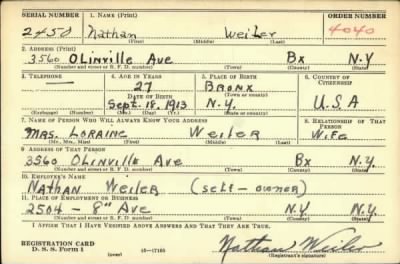 SERIAL NUMBER 1. NAME (Print) ORDER NUMBER
2458 Nathan Weiler 4040
(First) (Middle) (Last)
2. ADDRESS (Print)
3560 OLinville Ave Bx N.Y
(Number and street or R. F. D. number) (Town) (County) (State)
3. TELEPHONE 4. AGE IN YEARS 5. PLACE OF BIRTH 6. COUNTRY OF CITIZENSHIP
— 27 Bronx
DATE OF BIRTH (Town or county)
Sept. 18, 1913 N.Y. U.S.A
(Exchange) (Number) (Mo.) (Day) (Yr.) (State or country)
7. NAME OF PERSON WHO WILL ALWAYS KNOW YOUR ADDRESS 8. RELATIONSHIP OF THAT PERSON
MRS. LORAINE Weiler Wife
(Mr., Mrs., Miss) (First) (Middle) (Last)
9. ADDRESS OF THAT PERSON
3560 OLinville Ave Bx N.Y.
(Number and street or R. F. D. number) (Town) (County) (State)
10. EMPLOYER'S NAME
NAThan Weiler (self-owner)
11. PLACE OF EMPLOYMENT OR BUSINESS
2504 - 8th Ave N.Y N.Y.
(Number and street or R. F. D. number) (Town) (County) (State)
I AFFIRM THAT I HAVE VERIFIED ABOVE ANSWERS AND THAT THEY ARE TRUE.
REGISTRATION CARD
D. S. S. Form 1 (over) 16—17105 Nathan Weiler
(Registrant's signature)